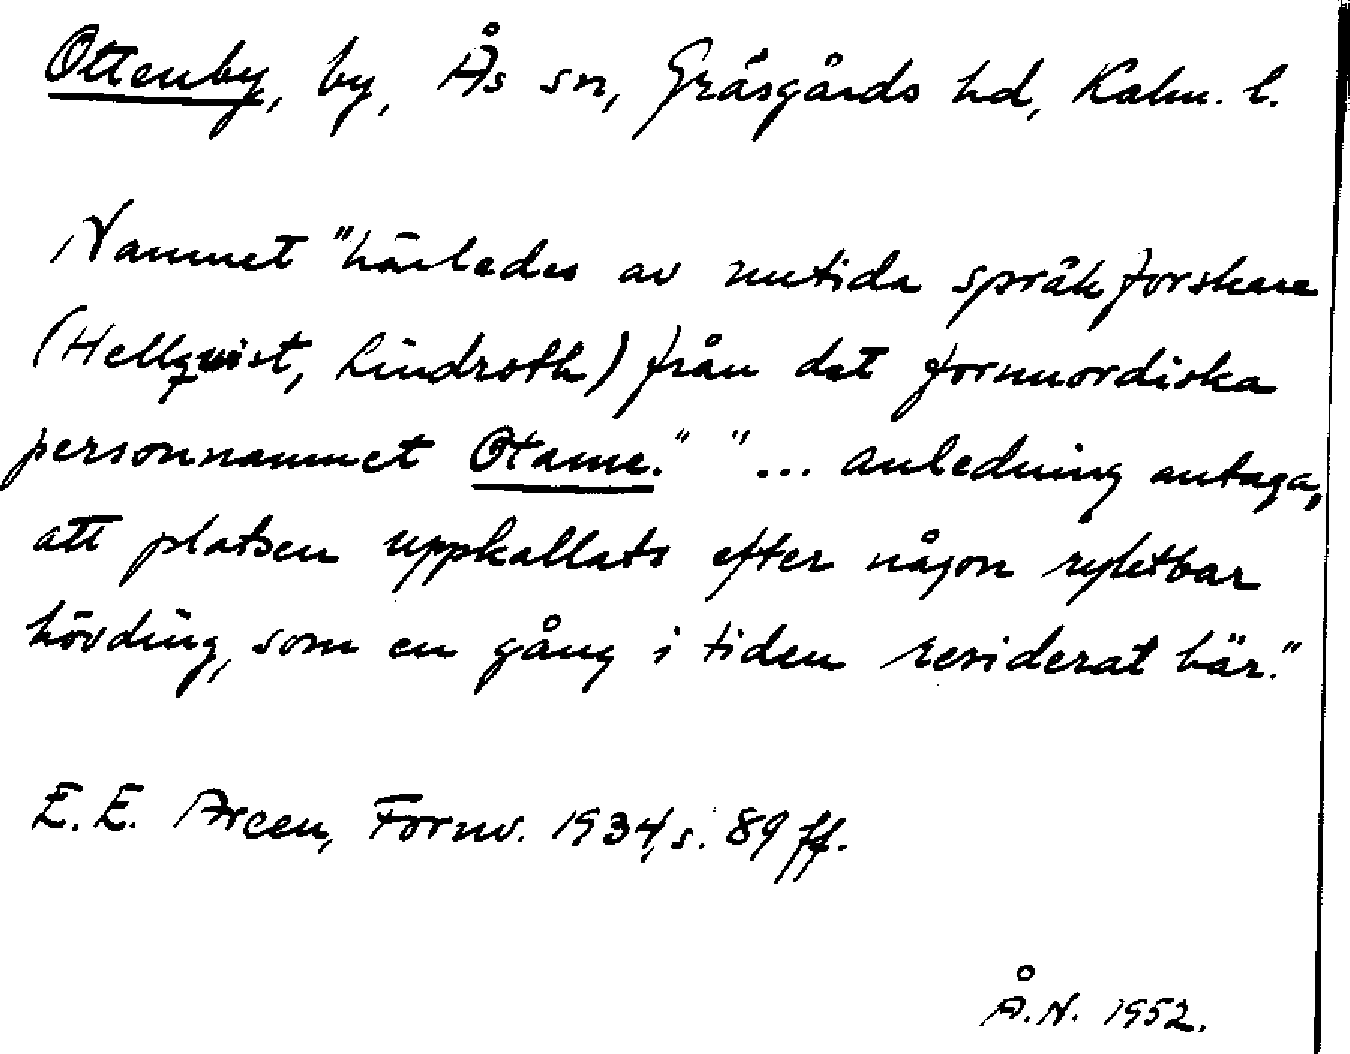 Ottenby, by, Ås sn, Gräsgårds hd, Kalm. l.
Namnet "härledes av nutida språkforskare
(Hellquist, Lindroth) från det fornnordiska
personnamnet Otame." "... anledning antaga,
att platsen uppkallats efter någon ryktbar
hövding, som en gång i tiden residerat här."
E.E. Arcen, Fornv. 1934, s. 89 ff.
Å.N. 1952.